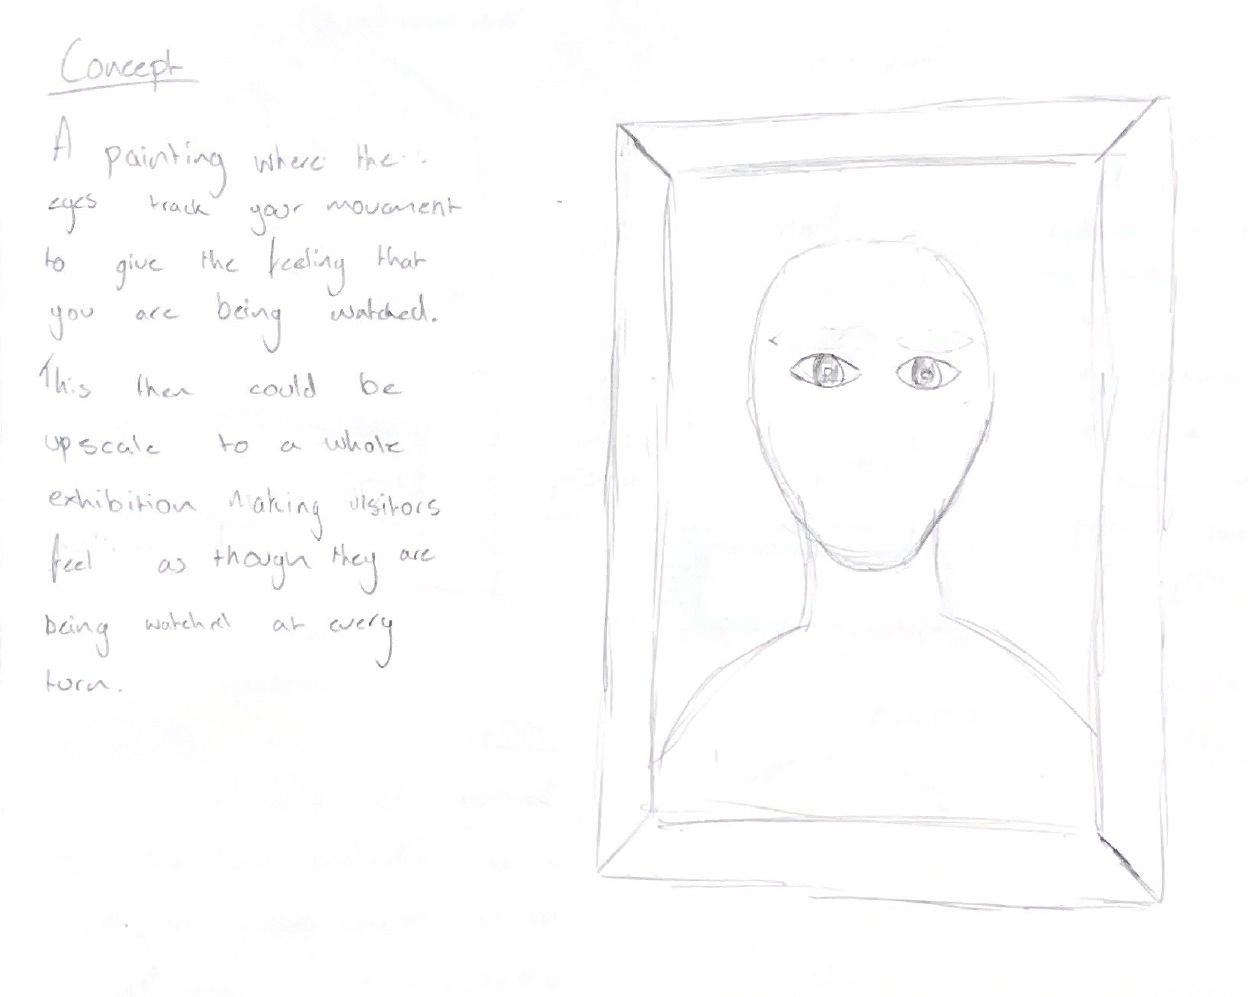 Concept
A painting where the
eyes track your movement
to give the feeling that
you are being watched.
This then could be
upscale to a whole
exhibition making visitors
feel as though they are
being watched at every
turn.